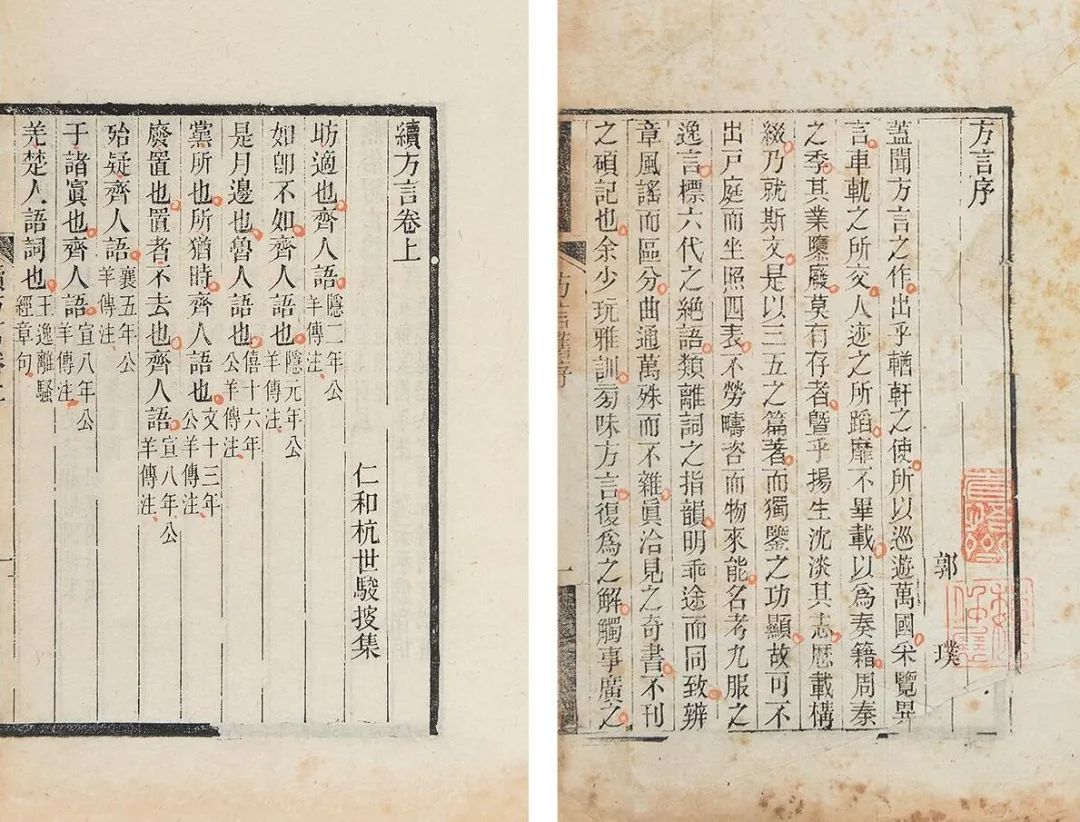 方言序
郭璞
蓋聞方言之作出乎輶軒之使所以巡遊萬國采覽異
言車軌之所交人迹之所蹈靡不畢載以爲奏籍周秦
之季其業隳廢莫有存者曁乎揚生沈淡其志歴載構
綴乃就斯文是以三五之篇著而獨鑒之功顯故可不
出戸庭而坐照四表不勞疇咨而物來能名考九服之
逸言標六代之絕語類離詞之指韻明乖途而同致辨
章風謠而區分曲通萬殊而不雜眞洽見之奇書不刊
之碩記也余少玩雅訓旁味方言復爲之解觸事廣之
續方言卷上
仁和杭世駿披集
昉適也齊人語隱二年公羊傳注
如卽不如齊人語也隱元年公羊傳注
是月邊也魯人語也僖十六年公羊傳注
黨所也所猶時齊人語也文十三年公羊傳注
廢置也置者不去也齊人語宣八年公羊傳注
殆疑齊人語襄五年公羊傳注
于諸寘也齊人語宣八年公羊傳注
羌楚人語詞也王逸離騷經章句